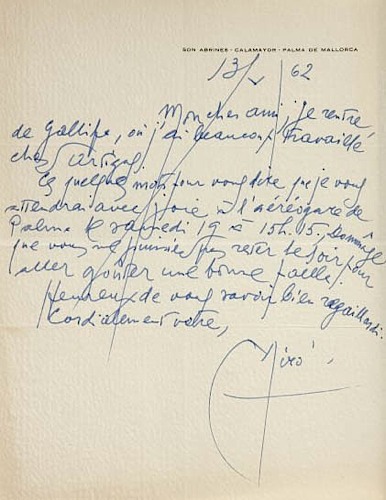 SON ABRINES - CALAMAYOR - PALMA DE MALLORCA
13/V/62
Mon cher ami, je rentre
de Gallifa, où j'ai beaucoup travaillé
chez Artigas.
Ce quelques mots pour vous dire que je vous
attendrai avec joie à l'aérogare de
Palma le samedi 19 à 15h.15. Dommage
que vous ne puissiez pas rester le soir pour
aller goûter une bonne paella.
Heureux de vous savoir bien regaillardi.
Cordialement votre,
Miró.